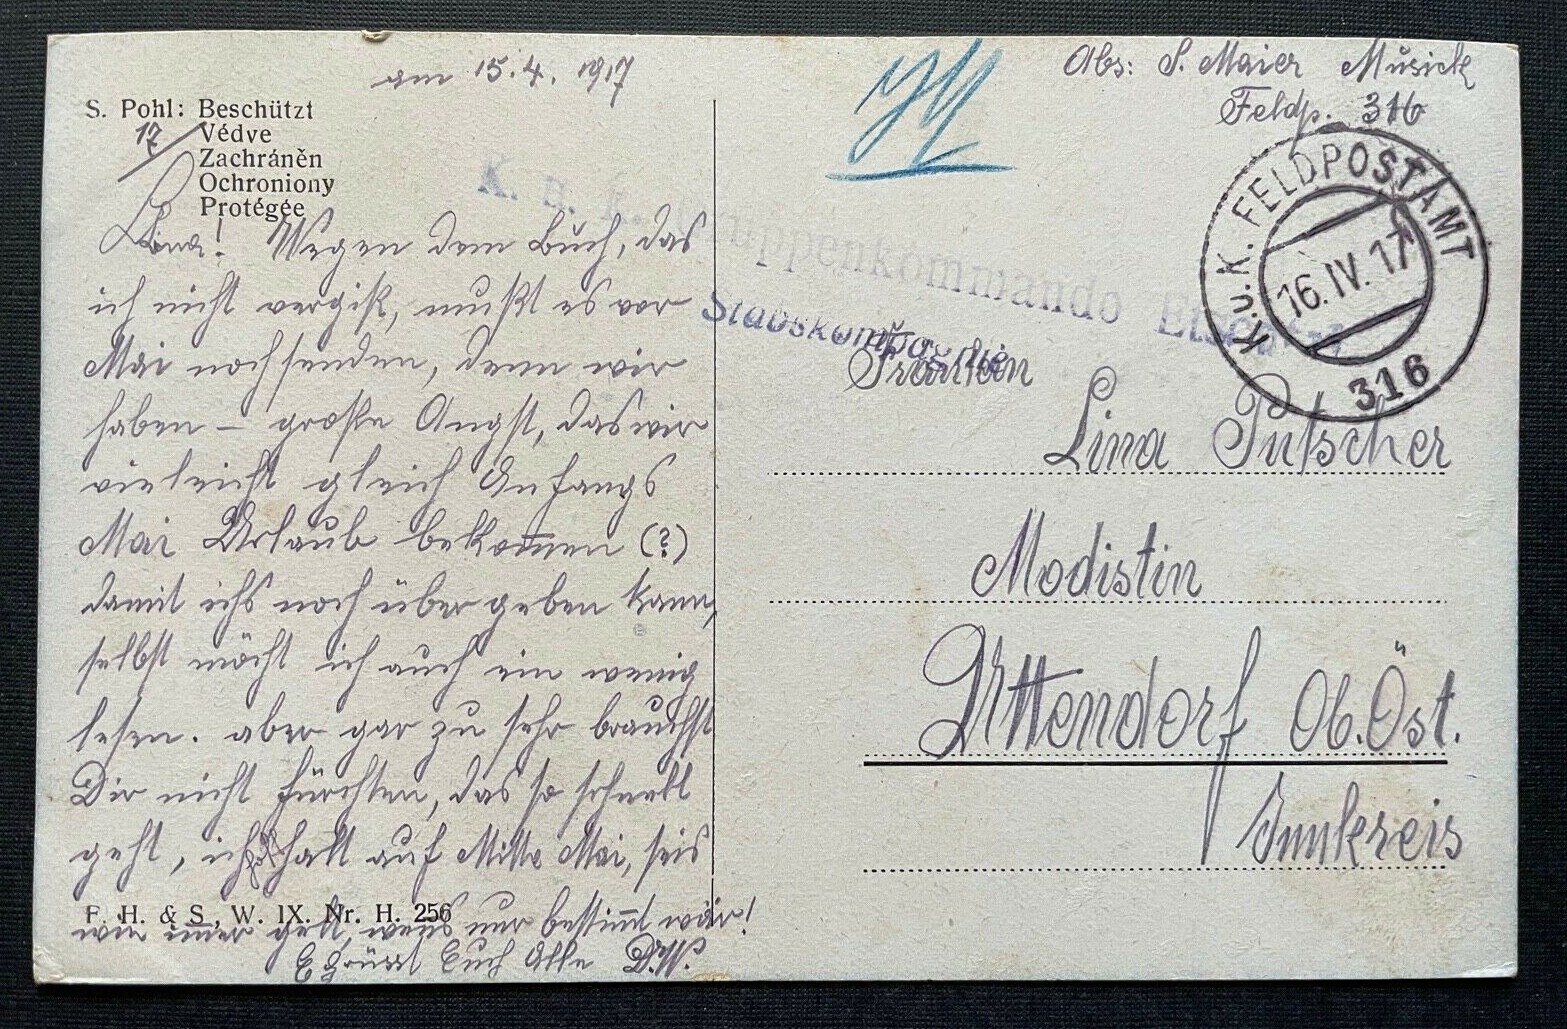 am 15.4.1917
S. Pohl: Beschützt
Védve
Zachráněn
Ochroniony
Protégée
17/
L. Lina! Wegen dem Buch, das
ich nicht vergiß, mußt es vor
Mai noch senden, denn wir
haben – große Angst, das wir
vielleicht gleich Anfangs
Mai Urlaub bekom̅en (?)
damit ichs noch übergeben kann,
selbst möcht ich auch ein wenig
lesen. aber gar zu sehr brauchst
Dir nicht fürchten, das so schnell
geht, ich halt auf Mitte Mai, seis
wie im̅er geht, wens nur bestim̅t wär!
F. H. & S., W. IX. Nr. H. 256
Grüsst Euch Alle D.W.
Abs: S. Maier Musick
Feldp. 316
K. u. K. Gruppenkommando
Stabskompagnie
K.u.K. FELDPOSTAMT
16.IV.17
316
Fräulein
Lina Putscher
Modistin
Uttendorf Ob.Öst.
Innkreis